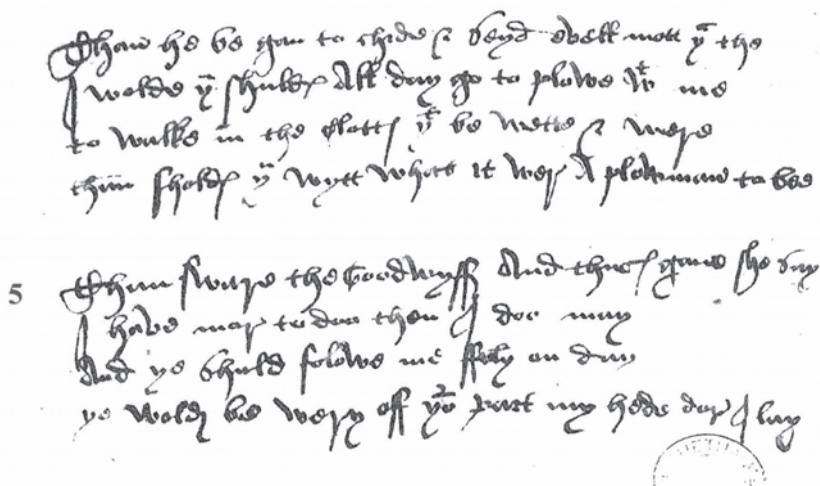 Than he be gan to chide & seyd evell mott yu the
I wolde yu shuldes All day go to plowe wt me
to walke in the clottes yt be wette & mere
than sholdes yu wytt whatt it wer A plowman to bee
5
Than sware the Goodwyff And thus gane she say
I have mor to doo then I doo may
And ye shuld folowe me ffoly on day
ye wold be wery off yor part my hede dar I lay